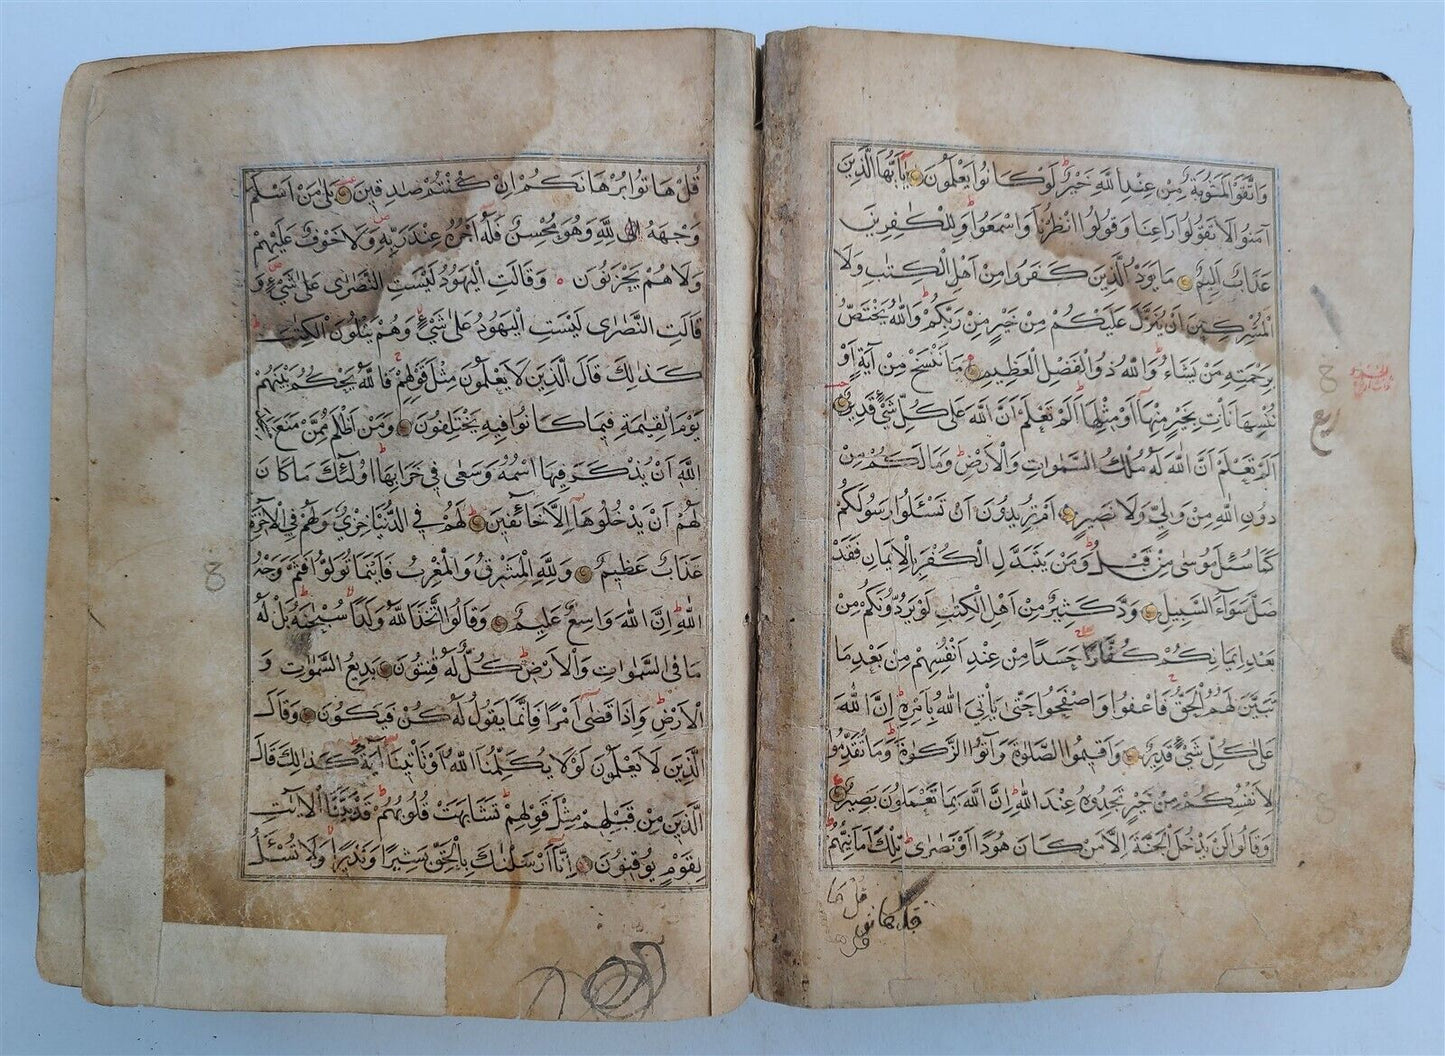 وَاتَّقَوْا لَمَثُوبَةٌ مِنْ عِنْدِ اللَّهِ خَيْرٌ لَوْ كَانُوا يَعْلَمُونَ يَا أَيُّهَا الَّذِينَ
آمَنُوا لَا تَقُولُوا رَاعِنَا وَقُولُوا انْظُرْنَا وَاسْمَعُوا وَلِلْكٰفِرِينَ
عَذَابٌ أَلِيمٌ مَا يَوَدُّ الَّذِينَ كَفَرُوا مِنْ أَهْلِ الْكِتٰبِ وَلَا
الْمُشْرِكِينَ أَنْ يُنَزَّلَ عَلَيْكُمْ مِنْ خَيْرٍ مِنْ رَبِّكُمْ وَاللَّهُ يَخْتَصُّ
بِرَحْمَتِهِ مَنْ يَشَاءُ وَاللَّهُ ذُو الْفَضْلِ الْعَظِيمِ مَا نَنْسَخْ مِنْ آيَةٍ أَوْ
نُنْسِهَا نَأْتِ بِخَيْرٍ مِنْهَا أَوْ مِثْلِهَا أَلَمْ تَعْلَمْ أَنَّ اللَّهَ عَلَى كُلِّ شَيْءٍ قَدِيرٌ
أَلَمْ تَعْلَمْ أَنَّ اللَّهَ لَهُ مُلْكُ السَّمٰوَاتِ وَالْأَرْضِ وَمَا لَكُمْ مِنْ
دُونِ اللَّهِ مِنْ وَلِيٍّ وَلَا نَصِيرٍ أَمْ تُرِيدُونَ أَنْ تَسْئَلُوا رَسُولَكُمْ
كَمَا سُئِلَ مُوسٰى مِنْ قَبْلُ وَمَنْ يَتَبَدَّلِ الْكُفْرَ بِالْإِيمَانِ فَقَدْ
ضَلَّ سَوَاءَ السَّبِيلِ وَدَّ كَثِيرٌ مِنْ أَهْلِ الْكِتٰبِ لَوْ يَرُدُّونَكُمْ مِنْ
بَعْدِ إِيمَانِكُمْ كُفَّارًا حَسَدًا مِنْ عِنْدِ أَنْفُسِهِمْ مِنْ بَعْدِ مَا
تَبَيَّنَ لَهُمُ الْحَقُّ فَاعْفُوا وَاصْفَحُوا حَتّٰى يَأْتِيَ اللَّهُ بِأَمْرِهِ إِنَّ اللَّهَ
عَلَى كُلِّ شَيْءٍ قَدِيرٌ وَأَقِيمُوا الصَّلٰوةَ وَآتُوا الزَّكٰوةَ وَمَا تُقَدِّمُوا
لِأَنْفُسِكُمْ مِنْ خَيْرٍ تَجِدُوهُ عِنْدَ اللَّهِ إِنَّ اللَّهَ بِمَا تَعْمَلُونَ بَصِيرٌ
وَقَالُوا لَنْ يَدْخُلَ الْجَنَّةَ إِلَّا مَنْ كَانَ هُودًا أَوْ نَصَارٰى تِلْكَ أَمَانِيُّهُمْ
قل ها
قل هاتو
قل ها
ربع
قُلْ هَاتُوا بُرْهَانَكُمْ إِنْ كُنْتُمْ صٰدِقِينَ بَلٰى مَنْ أَسْلَمَ
وَجْهَهُ لِلَّهِ وَهُوَ مُحْسِنٌ فَلَهُ أَجْرُهُ عِنْدَ رَبِّهِ وَلَا خَوْفٌ عَلَيْهِمْ
وَلَا هُمْ يَحْزَنُونَ وَقَالَتِ الْيَهُودُ لَيْسَتِ النَّصَارٰى عَلٰى شَيْءٍ وَ
قَالَتِ النَّصَارٰى لَيْسَتِ الْيَهُودُ عَلٰى شَيْءٍ وَهُمْ يَتْلُونَ الْكِتٰبَ
كَذٰلِكَ قَالَ الَّذِينَ لَا يَعْلَمُونَ مِثْلَ قَوْلِهِمْ فَاللَّهُ يَحْكُمُ بَيْنَهُمْ
يَوْمَ الْقِيٰمَةِ فِيمَا كَانُوا فِيهِ يَخْتَلِفُونَ وَمَنْ أَظْلَمُ مِمَّنْ مَنَعَ
اللَّهِ أَنْ يُذْكَرَ فِيهَا اسْمُهُ وَسَعٰى فِي خَرَابِهَا أُولٰئِكَ مَا كَانَ
لَهُمْ أَنْ يَدْخُلُوهَا إِلَّا خَائِفِينَ لَهُمْ فِي الدُّنْيَا خِزْيٌ وَلَهُمْ فِي الْآخِرَةِ
عَذَابٌ عَظِيمٌ وَلِلَّهِ الْمَشْرِقُ وَالْمَغْرِبُ فَأَيْنَمَا تُوَلُّوا فَثَمَّ وَجْهُ
اللَّهِ إِنَّ اللَّهَ وَاسِعٌ عَلِيمٌ وَقَالُوا اتَّخَذَ اللَّهُ وَلَدًا سُبْحٰنَهُ بَلْ لَهُ
مَا فِي السَّمٰوَاتِ وَالْأَرْضِ كُلٌّ لَهُ قٰنِتُونَ بَدِيعُ السَّمٰوَاتِ وَ
الْأَرْضِ وَإِذَا قَضٰى أَمْرًا فَإِنَّمَا يَقُولُ لَهُ كُنْ فَيَكُونُ وَقَالَ
الَّذِينَ لَا يَعْلَمُونَ لَوْلَا يُكَلِّمُنَا اللَّهُ أَوْ تَأْتِينَا آيَةٌ كَذٰلِكَ قَالَ
الَّذِينَ مِنْ قَبْلِهِمْ مِثْلَ قَوْلِهِمْ تَشَابَهَتْ قُلُوبُهُمْ قَدْ بَيَّنَّا الْآيَاتِ
لِقَوْمٍ يُوقِنُونَ إِنَّا أَرْسَلْنٰكَ بِالْحَقِّ بَشِيرًا وَنَذِيرًا وَلَا تُسْئَلُ